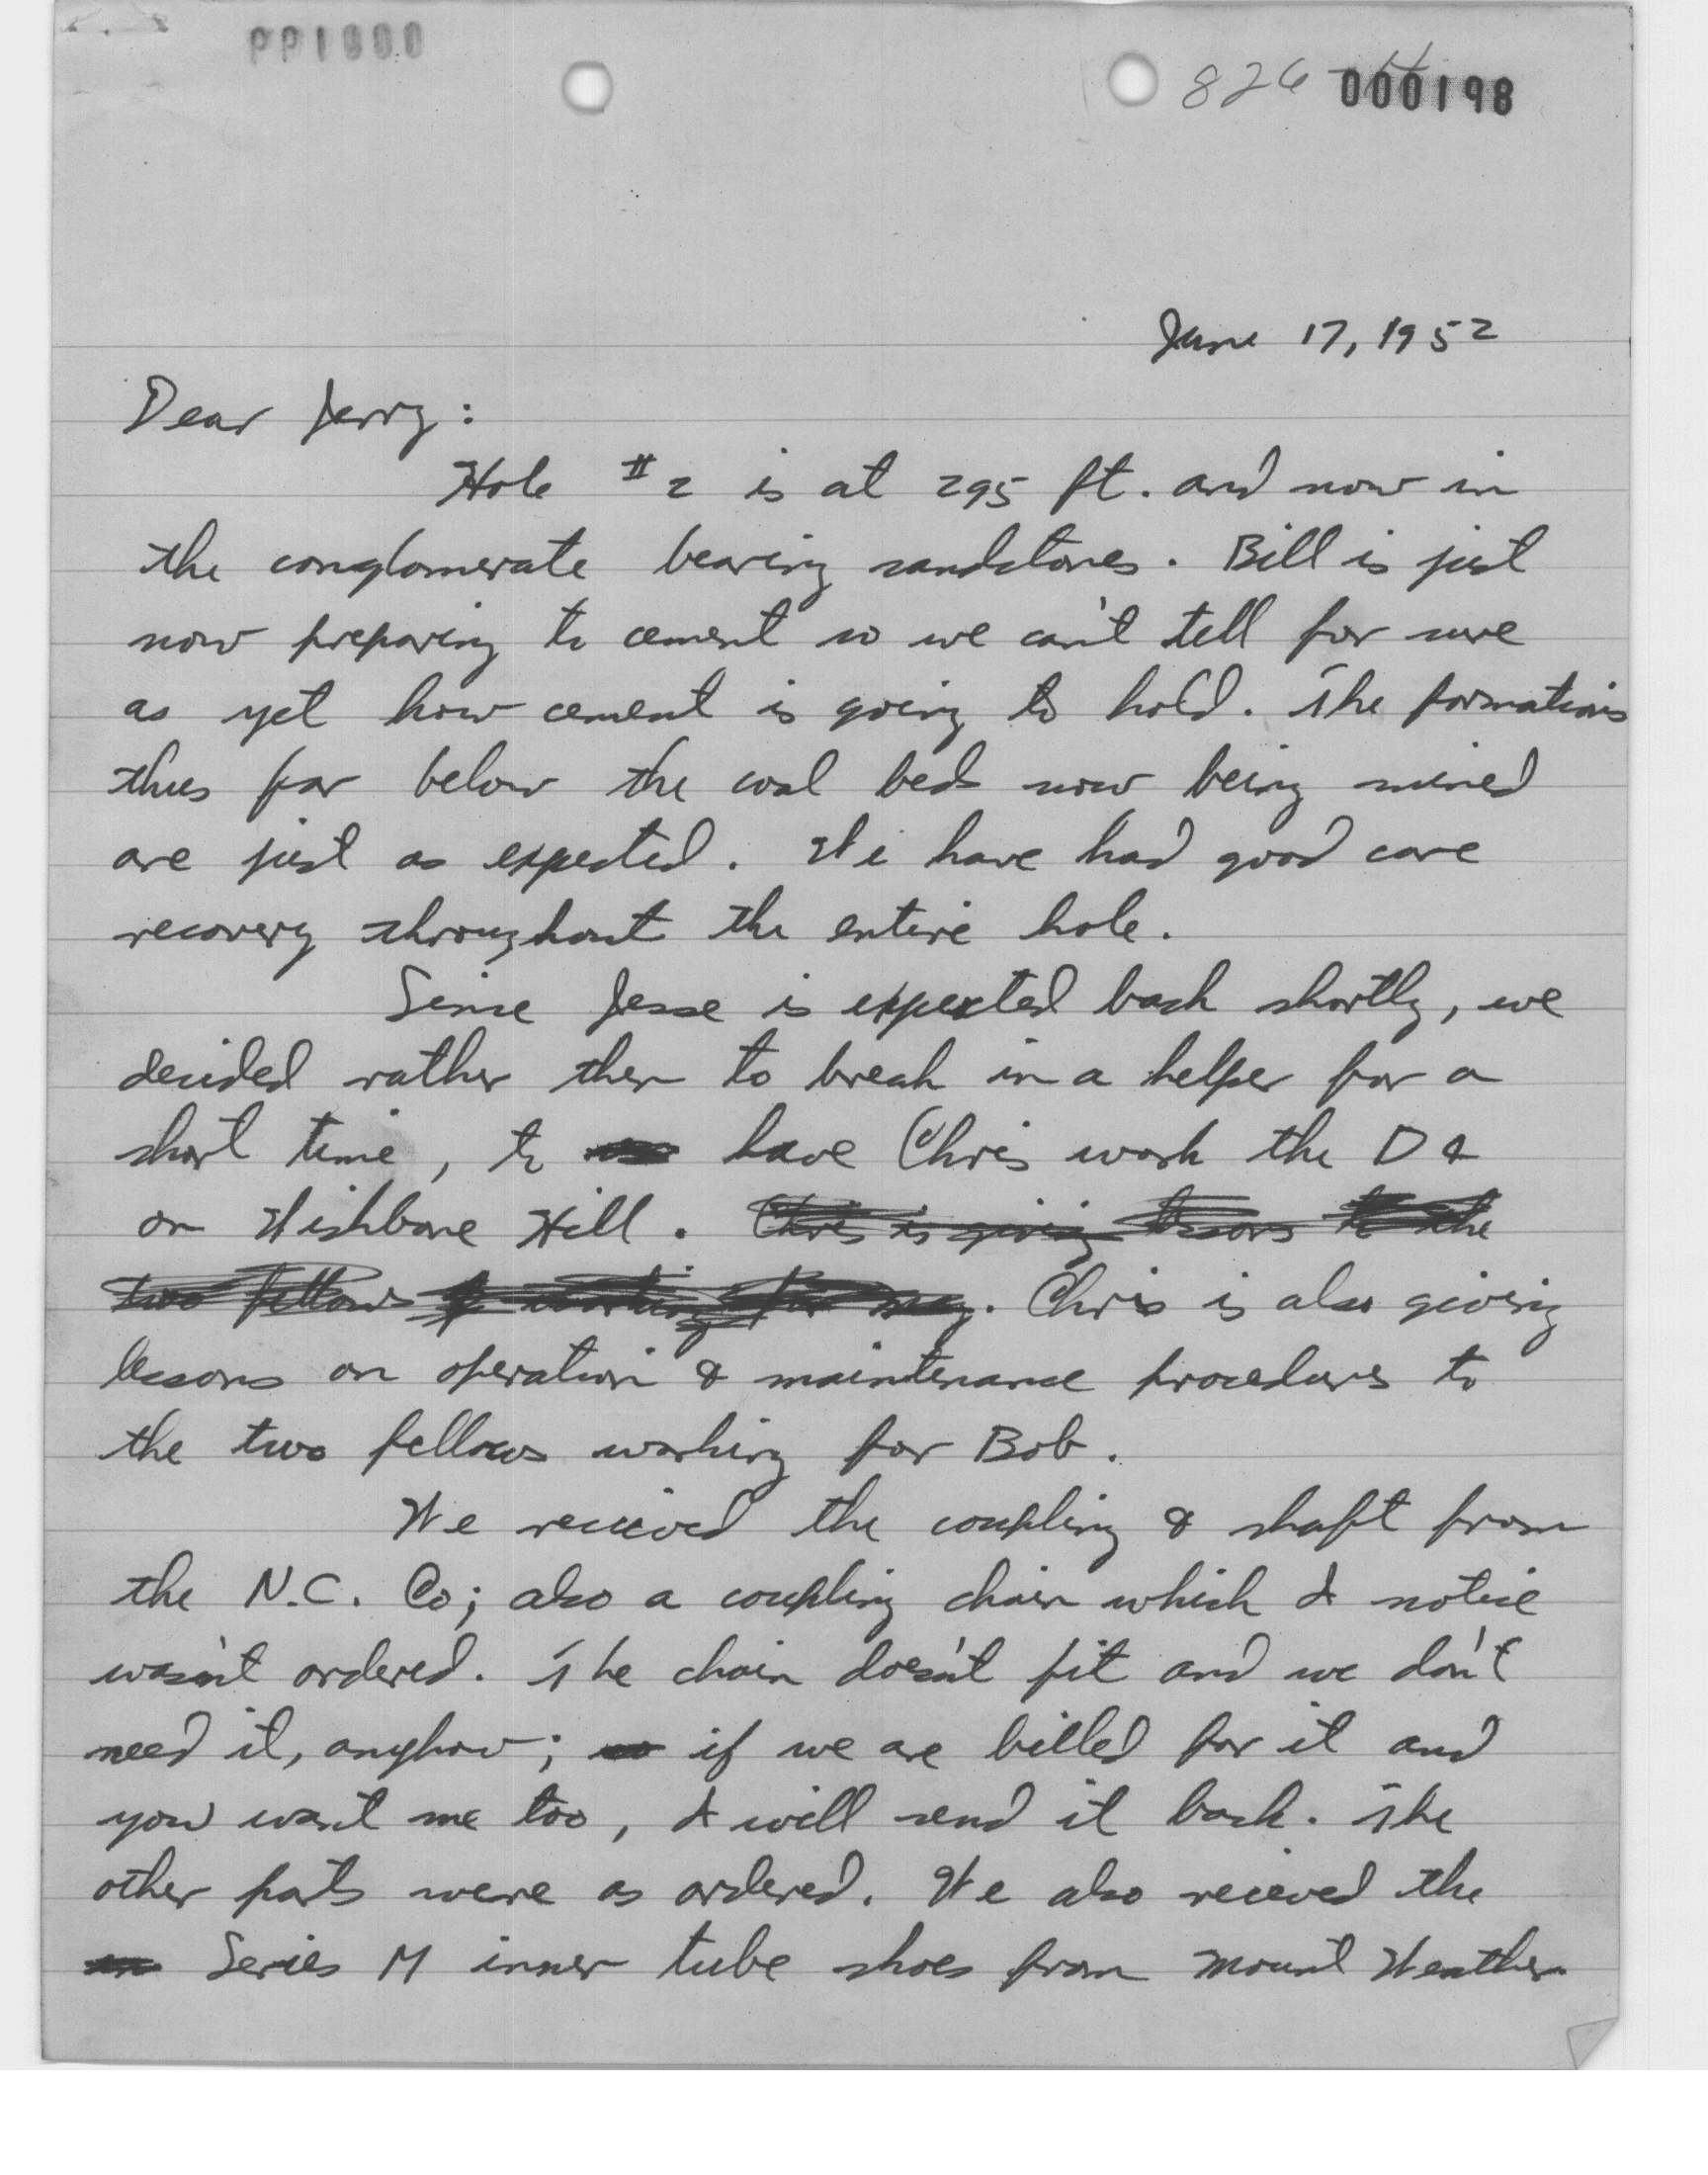 PP1000
826-H 000198
June 17, 1952
Dear Jerry:
Hole #2 is at 295 ft. and now in
the conglomerate bearing sandstones. Bill is just
now preparing to cement so we can't tell for sure
as yet how cement is going to hold. The formations
thus far below the coal beds now being mined
are just as expected. We have had good core
recovery throughout the entire hole.
Since Jesse is expected back shortly, we
decided rather then to break in a helper for a
short time, to have Chris work the D &
on Wishbone Hill. Chris is giving lessons to the
two fellows working for . Chris is also giving
lessons on operation & maintenance procedures to
the two fellows working for Bob.
We recieved the coupling & shaft from
the N.C. Co; also a coupling chain which I notice
wasn't ordered. The chain doesn't fit and we don't
need it, anyhow; if we are billed for it and
you want me too, I will send it back. The
other parts were as ordered. We also recieved the
Series M inner tube shoes from Mount Weather